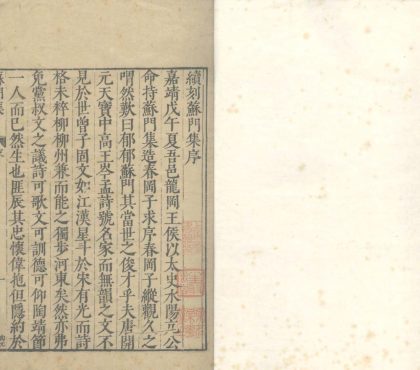 續刻蘇門集序
嘉靖戊午夏吾邑龍岡王侯以太史水陽亢公
命持蘇門集造春岡子求序春岡子縱觀久之
喟然歎曰郁郁蘇門其當世之俊才乎夫唐開
元天寶中高王岑孟詩號名家而無韻之文不
見於世曾子固文如江漢星斗於宋有光而詩
格未粹柳柳州兼而能之獨步河東矣然亦弗
免黨叔文之議詩可歌文可訓德可仰陶靖節
一人而已然生也匪辰其忠懷偉抱但隱約於